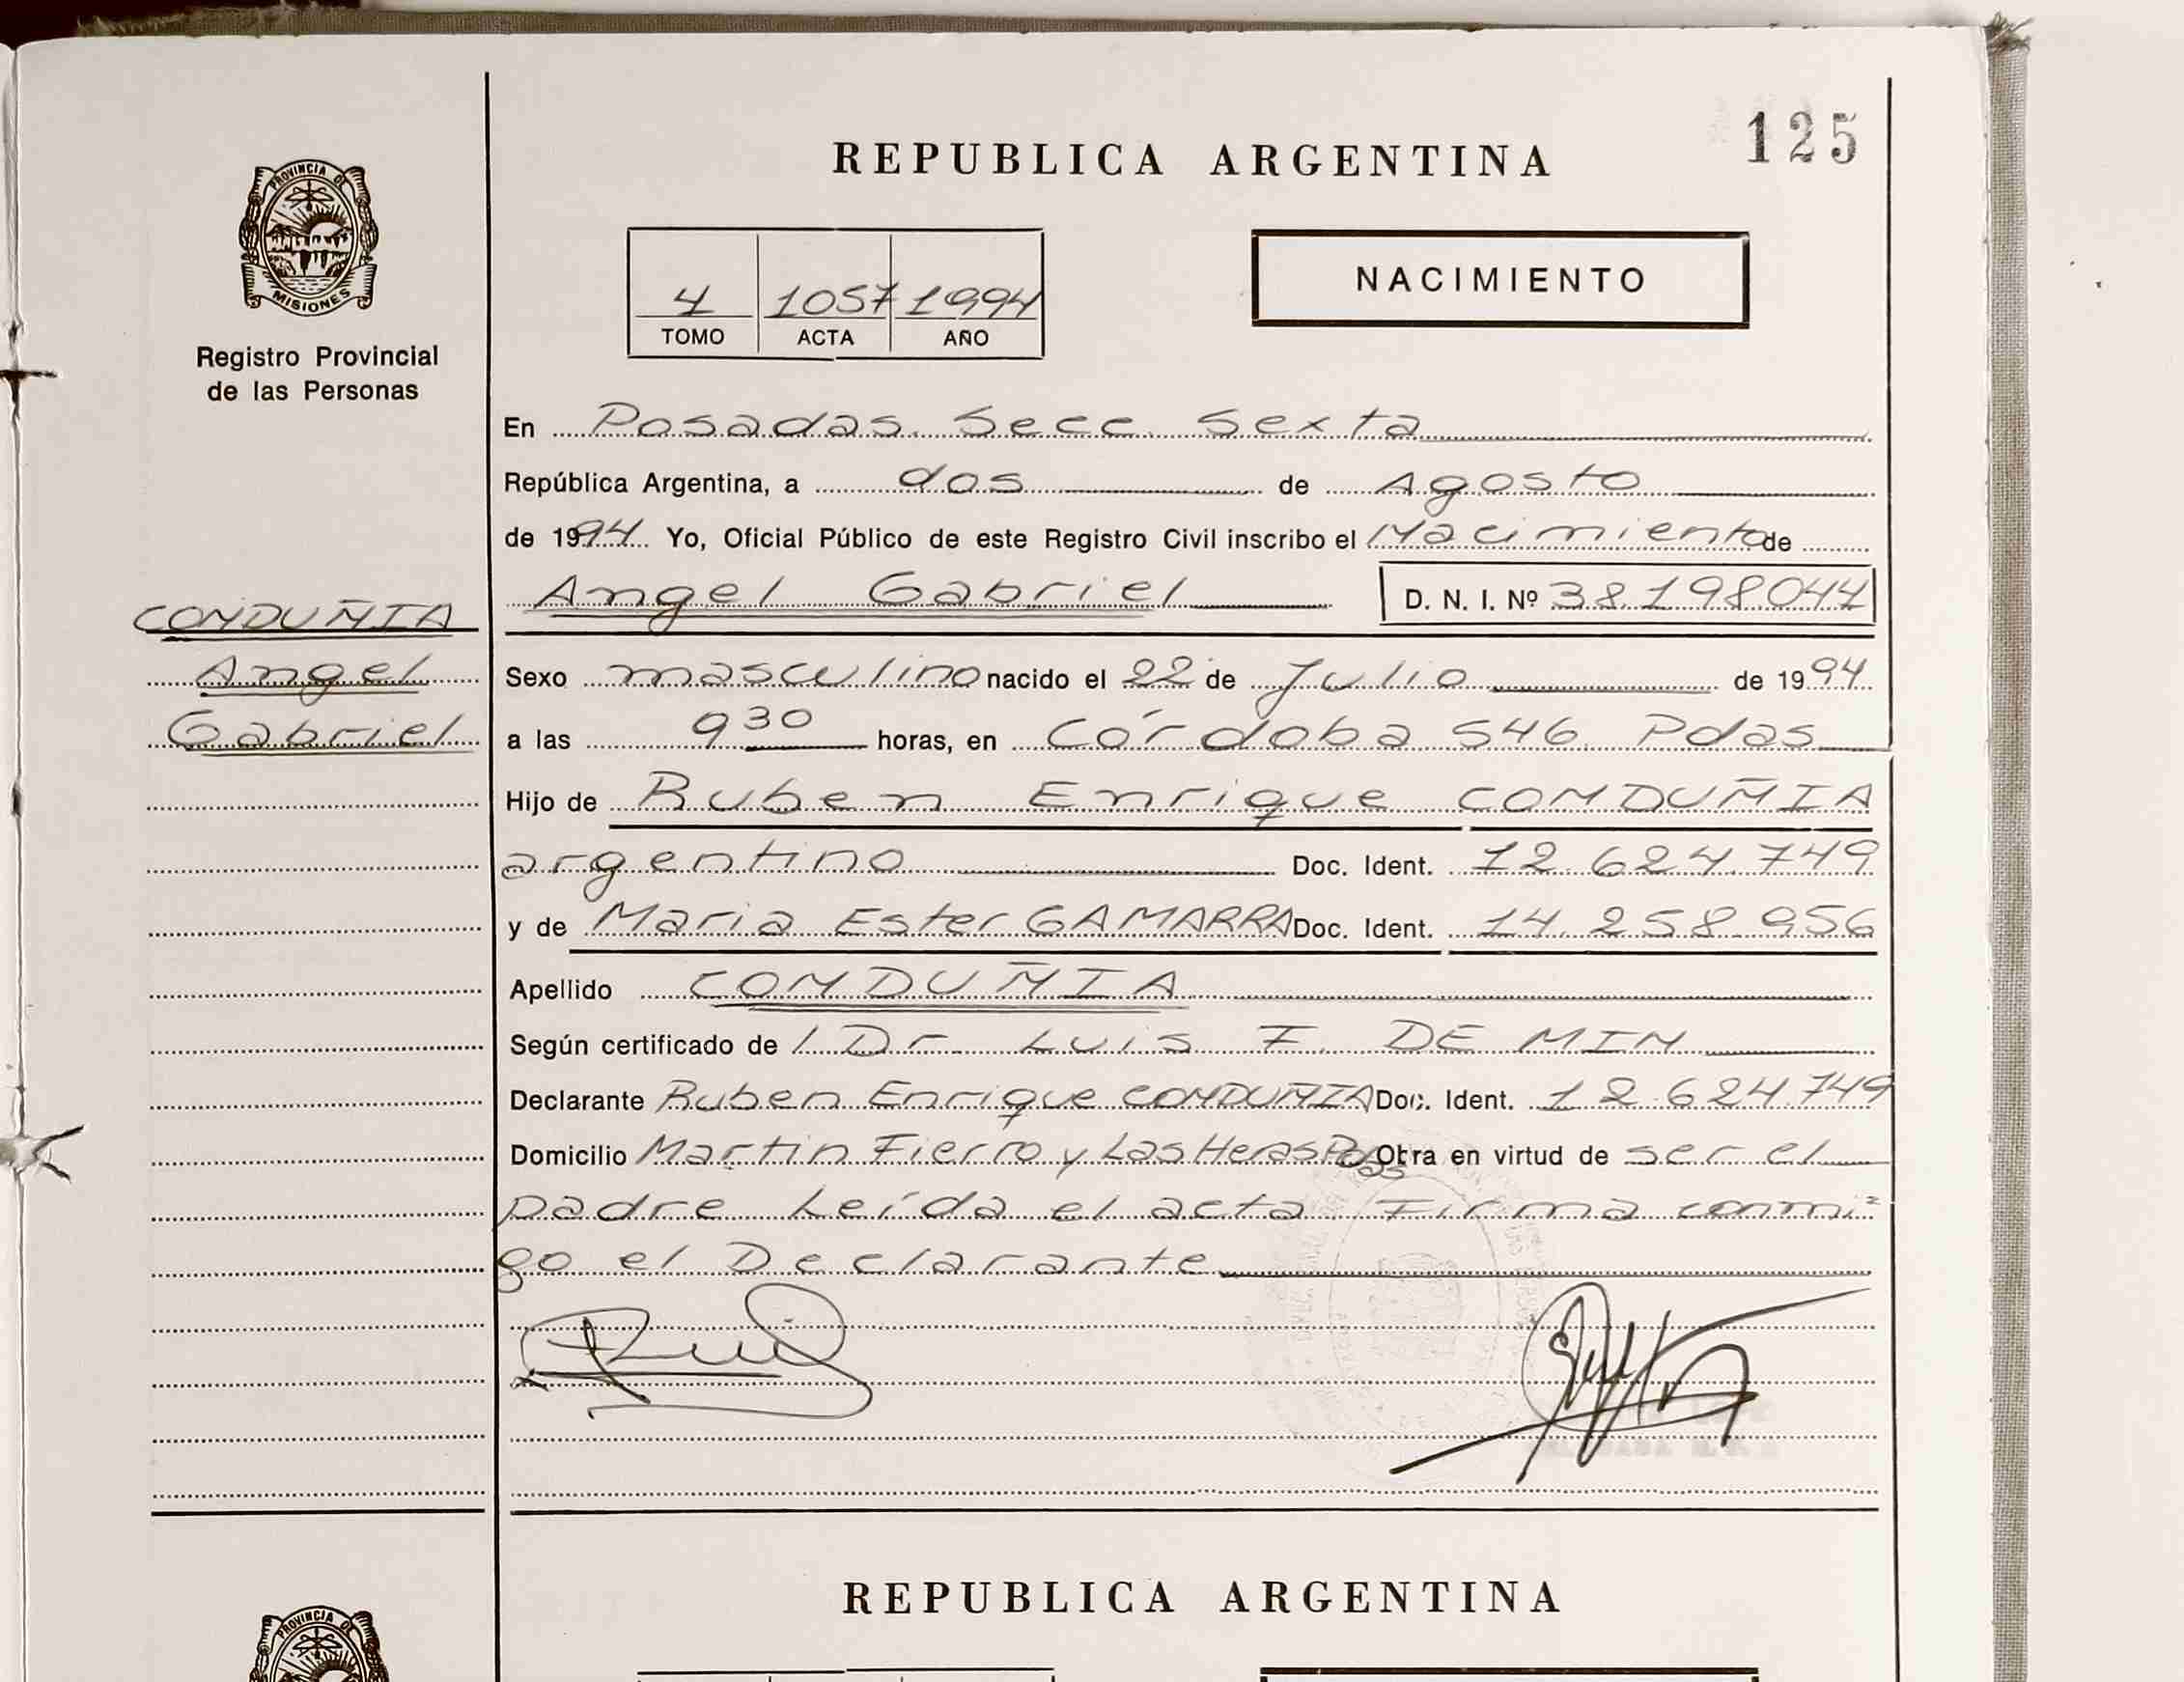 125
REPUBLICA ARGENTINA
PROVINCIA DE
MISIONES
NACIMIENTO
4 1057 1994
TOMO ACTA AÑO
Registro Provincial
de las Personas
En Posadas Secc. Sexta
República Argentina, a dos de Agosto
de 1994 Yo, Oficial Público de este Registro Civil inscribo el Nacimiento de
Angel Gabriel D. N. I. Nº 38198044
CONDUÑIA
Angel
Gabriel
Sexo masculino nacido el 22 de Julio de 1994
a las 9 30 horas, en Córdoba 546 Pdas
Hijo de Ruben Enrique CONDUÑIA
argentino Doc. Ident. 12.624.749
y de Maria Ester GAMARRA Doc. Ident. 14.258.956
Apellido CONDUÑIA
Según certificado de l Dr Luis F. DE MIN
Declarante Ruben Enrique CONDUÑIA Doc. Ident. 12.624.749
Domicilio Martin Fierro y Las Heras Pdas Obra en virtud de ser el
padre Leída el acta Firma conmi=
go el Declarante
REPUBLICA ARGENTINA
PROVINCIA DE